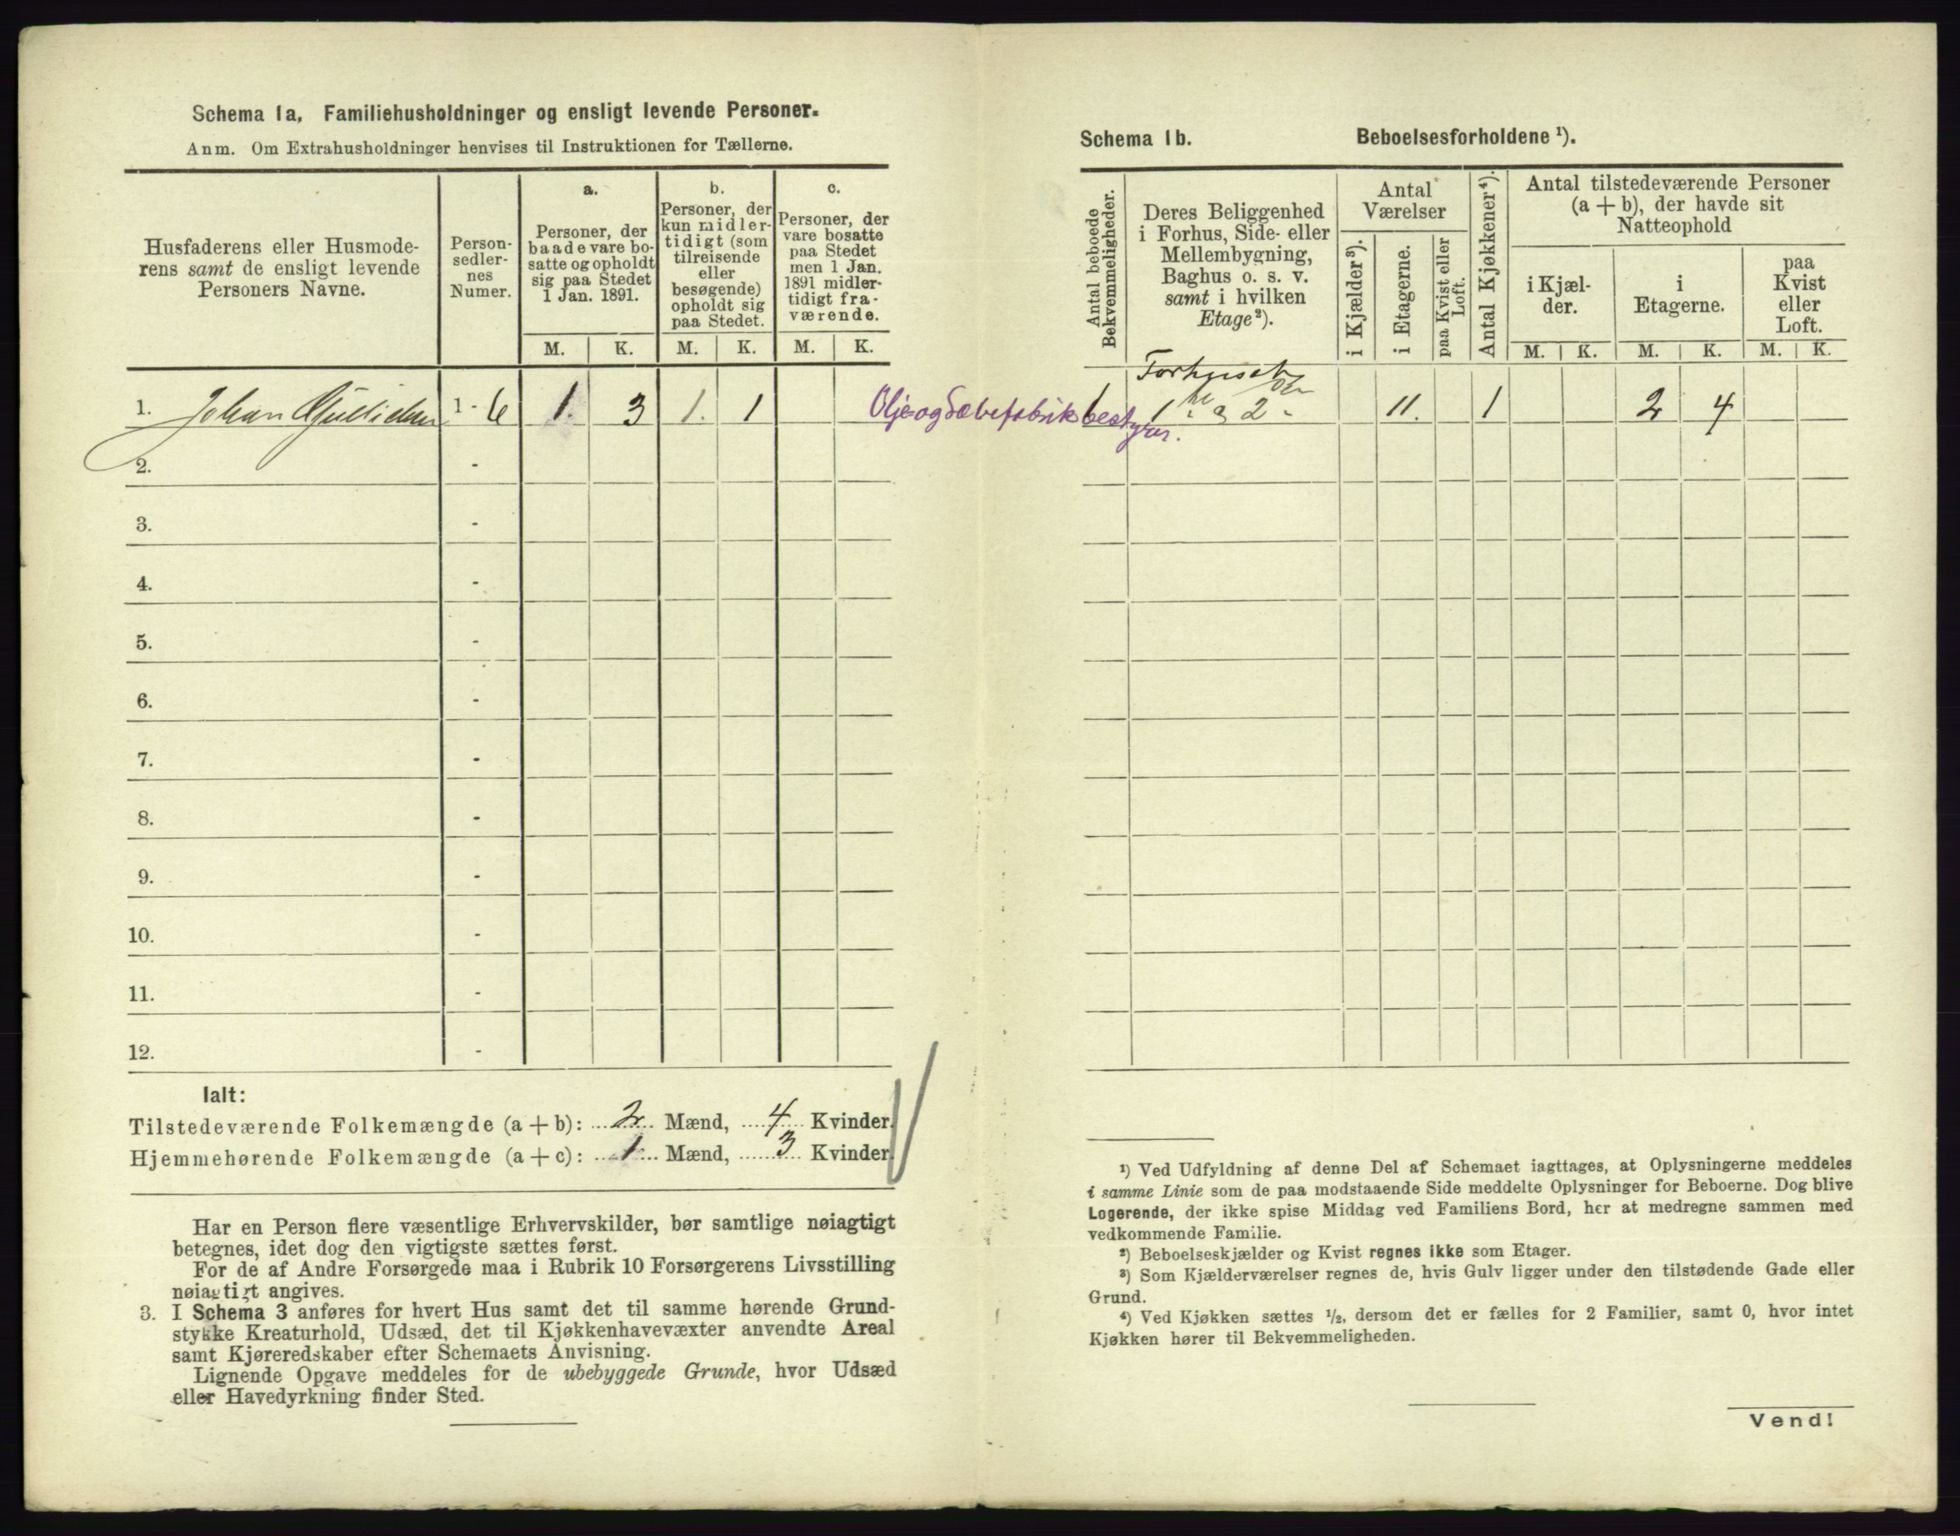 Schema 1a. Familiehusholdninger og ensligt levende Personer.
Anm. Om Extrahusholdninger henvises til Instruktionen for Tællerne.
Husfaderens eller Husmode-
rens samt de ensligt levende
Personers Navne.
Person-
sedler-
nes
Numer.
a.
Personer, der
baade vare bo-
satte og opholdt
sig paa Stedet
1 Jan. 1891.
b.
Personer, der
kun midler-
tidigt (som
tilreisende
eller
besøgende)
opholdt sig
paa Stedet.
c.
Personer, der
vare bosatte
paa Stedet
men 1 Jan.
1891 midler-
tidigt fra-
værende.
M. K. M. K. M. K.
1. Johan 1 - 6 1. 3 1. 1
2. -
3. -
4. -
5. -
6. -
7. -
8. -
9. -
10. -
11. -
12. -
Ialt:
Tilstedeværende Folkemængde (a + b): 2 Mænd, 4 Kvinder.
Hjemmehørende Folkemængde (a + c): 1 Mænd, 3 Kvinder.
Har en Person flere væsentlige Erhvervskilder, bør samtlige nøiagtigt
betegnes, idet dog den vigtigste sættes først.
For de af Andre Forsørgede maa i Rubrik 10 Forsørgerens Livsstilling
nøiagtigt angives.
3. I Schema 3 anføres for hvert Hus samt det til samme hørende Grund-
stykke Kreaturhold, Udsæd, det til Kjøkkenhavevæxter anvendte Areal
samt Kjøreredskaber efter Schemaets Anvisning.
Lignende Opgave meddeles for de ubebyggede Grunde, hvor Udsæd
eller Havedyrkning finder Sted.
Schema 1b. Beboelsesforholdene ¹).
Antal beboede
Bekvemmeligheder.
Deres Beliggenhed
i Forhus, Side- eller
Mellembygning,
Baghus o. s. v.
samt i hvilken
Etage²).
Antal
Værelser
i Kjælder³).
i Etagerne.
paa Kvist eller
Loft.
Antal Kjøkkener⁴).
Antal tilstedeværende Personer
(a + b), der havde sit
Natteophold
i Kjæl-
der.
i
Etagerne.
paa
Kvist
eller
Loft.
M. K. M. K. M. K.
Forhuset
Olje og Sæbefabrikbestyrer. 1 1 2 11. 1 2 4
¹) Ved Udfyldning af denne Del af Schemaet iagttages, at Oplysningerne meddeles
i samme Linie som de paa modstaaende Side meddelte Oplysninger for Beboerne. Dog blive
Logerende, der ikke spise Middag ved Familiens Bord, her at medregne sammen med
vedkommende Familie.
²) Beboelseskjælder og Kvist regnes ikke som Etager.
³) Som Kjælderværelser regnes de, hvis Gulv ligger under den tilstødende Gade eller
Grund.
⁴) Ved Kjøkken sættes ½, dersom det er fælles for 2 Familier, samt 0, hvor intet
Kjøkken hører til Bekvemmeligheden.
Vend!